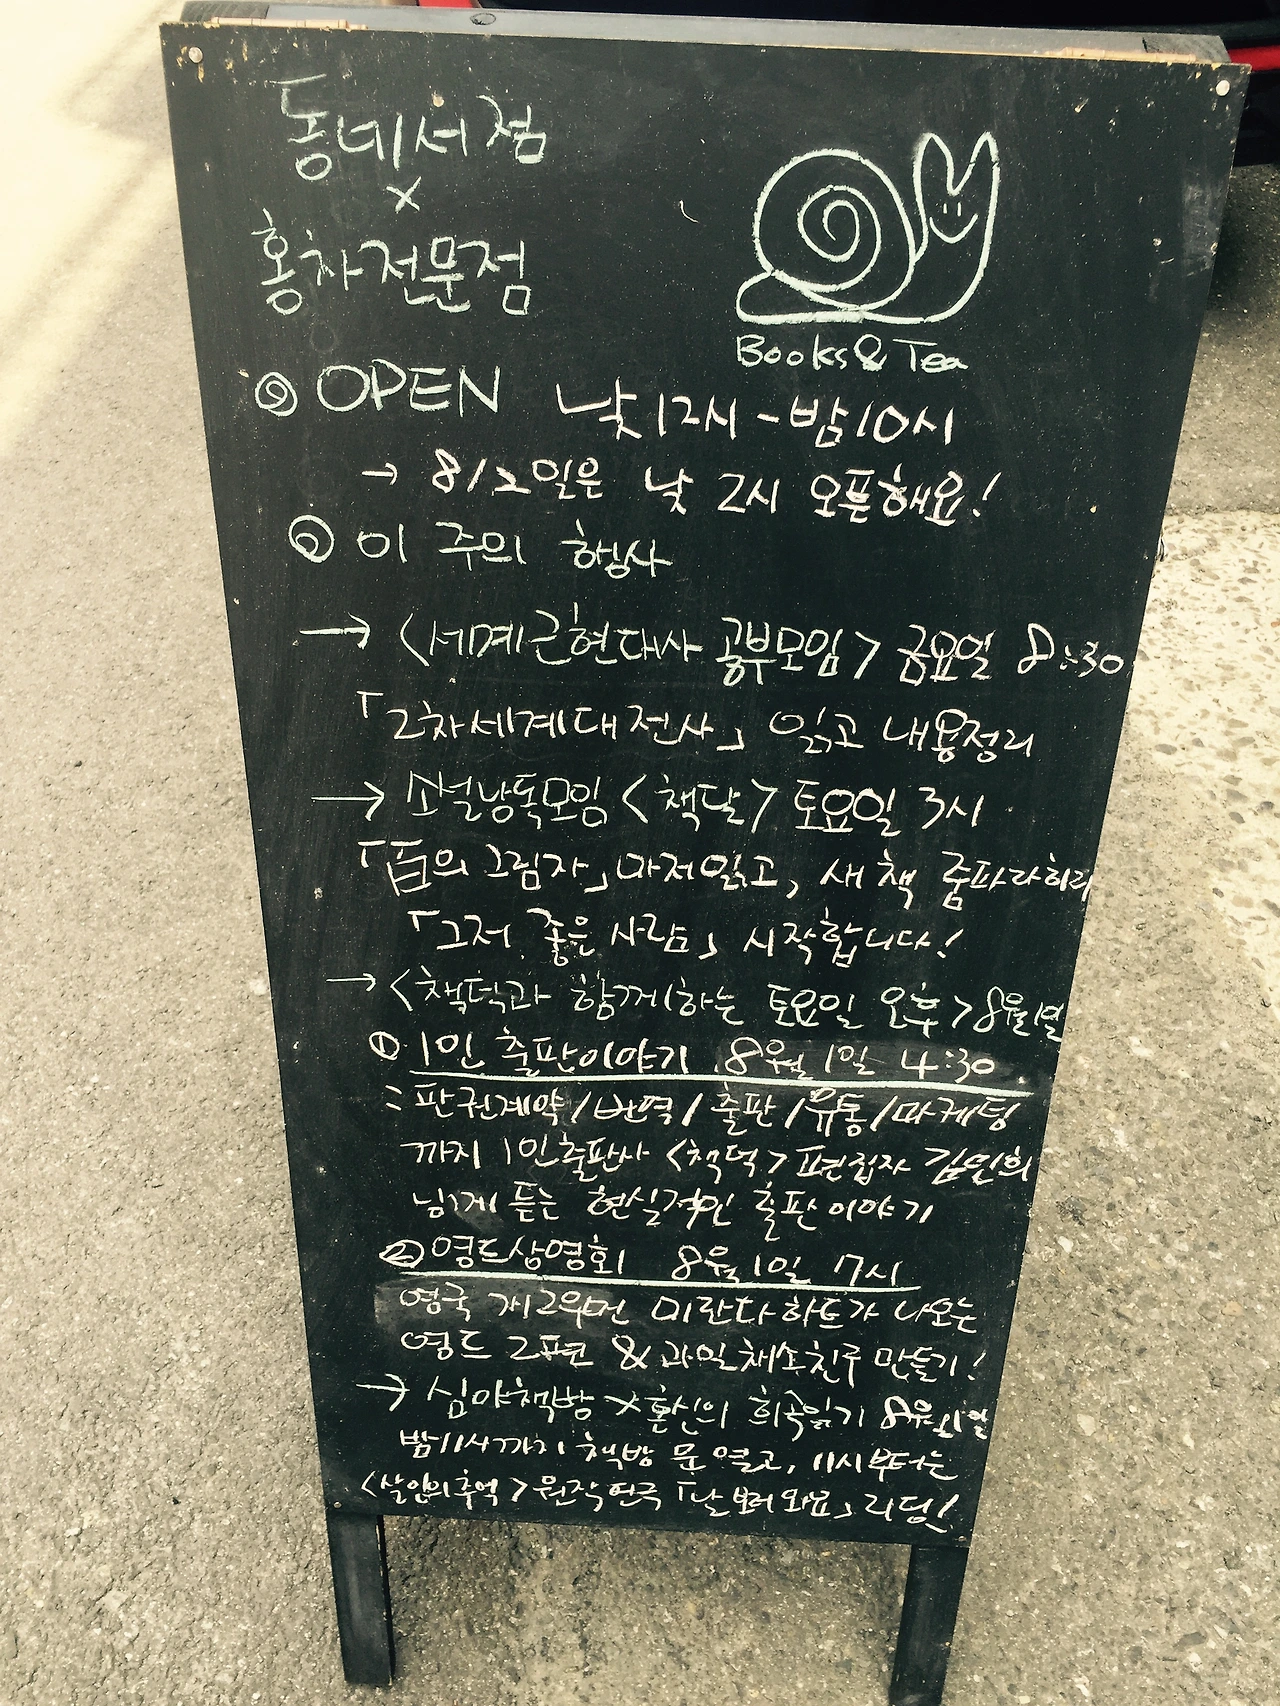 동네서점
x
홍차전문점
Books & Tea
OPEN 낮 12시 - 밤 10시
→ 8/2일은 낮 2시 오픈해요!
이 주의 행사
→ <세계근현대사 공부모임> 금요일 8:30
「2차세계대전사」 읽고 내용정리
→ 소설낭독모임 <책달> 토요일 3시
「품의 그림자」 마저읽고, 새 책 줌파라히리
「그저 좋은 사람」 시작합니다!
→ <책덕과 함께하는 토요일 오후> 8월1일
① 1인 출판이야기 8월 1일 4:30
: 판권계약/번역/출판/유통/마케팅
까지 1인출판사 <책덕> 편집자 김민희
님께 듣는 현실적인 출판이야기
② 영드상영회 8월 1일 7시
영국 개그우먼 미란다하트가 나오는
영드 2편 & 과일채소친구 만들기!
→ 심야책방 x 혼신의 희곡읽기 8월 1일
밤11시까지 책방 문 열고, 11시부터는
<살인의 추억> 원작연극 「날 보러와요」 리딩!